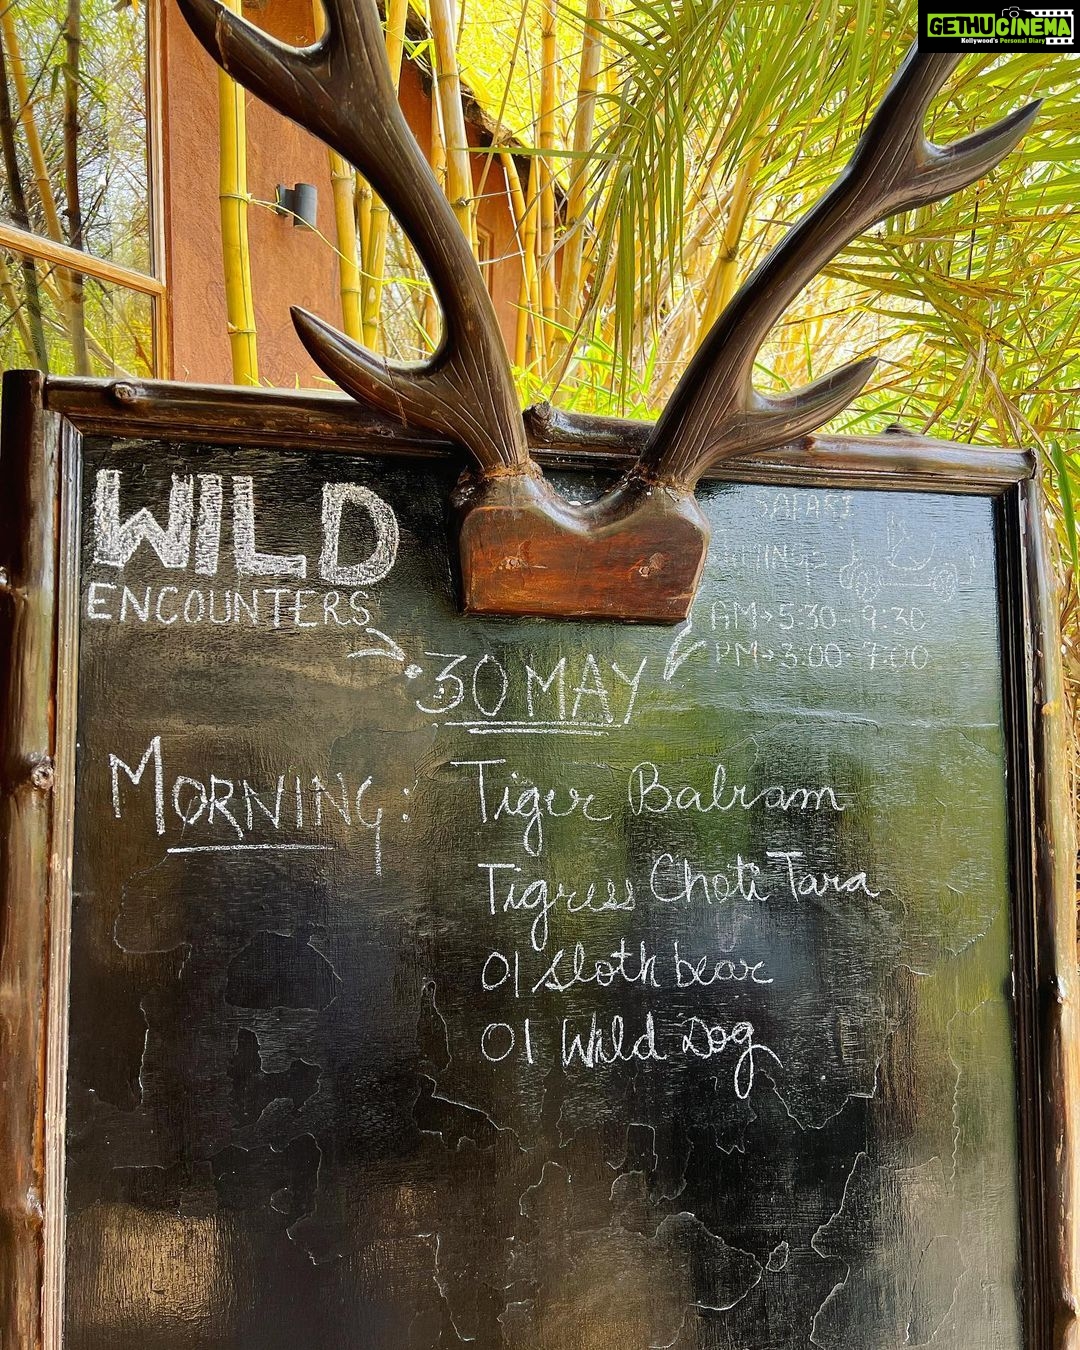 GETHUCINEMA
Kollywood's Personal Diary
WILD
ENCOUNTERS
SAFARI
TIMING:
AM→5:30-9:30
PM→3:00-7:00
30 MAY
MORNING:
Tiger Balram
Tigress Choti Tara
01 Sloth bear
01 Wild Dog